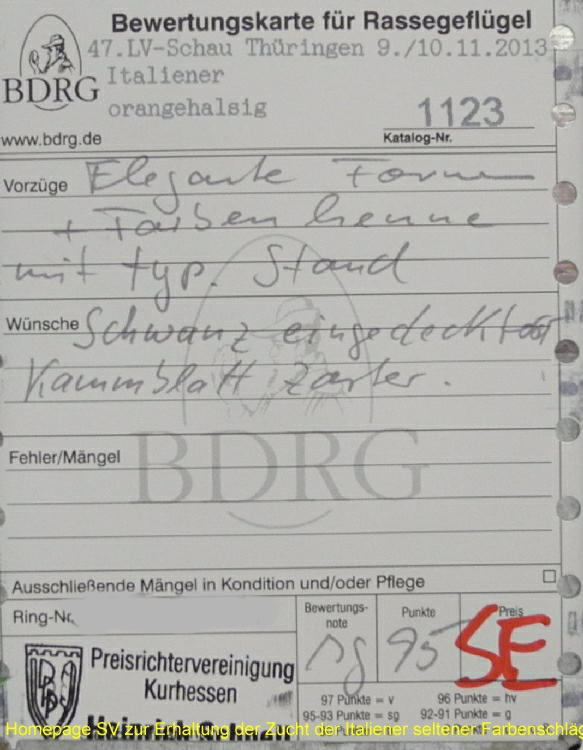 Bewertungskarte für Rassegeflügel
47.LV-Schau Thüringen 9./10.11.2013
Italiener
BDRG
orangehalsig
1123
www.bdrg.de
Katalog-Nr.
Vorzüge Elegante Form
+ Farbenhenne
mit typ. Stand
Wünsche Schwanz eingedeckter
Kammblatt zarter.
Fehler/Mängel
BDRG
Ausschließende Mängel in Kondition und/oder Pflege
Ring-Nr.
Bewertungs-
note
Punkte
Preis
sg 95 SE
Preisrichtervereinigung
Kurhessen
97 Punkte = v 96 Punkte = hv
95-93 Punkte = sg 92-91 Punkte = g
Homepage SV zur Erhaltung der Zucht der Italiener seltener Farbenschläg